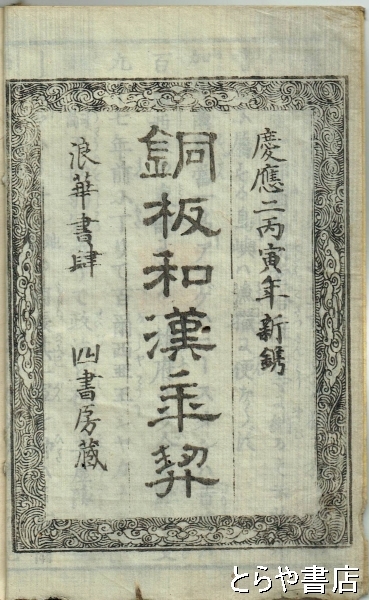 慶應二丙寅年新鐫
銅板和漢年契
浪華書肆 四書房藏
とらや書店